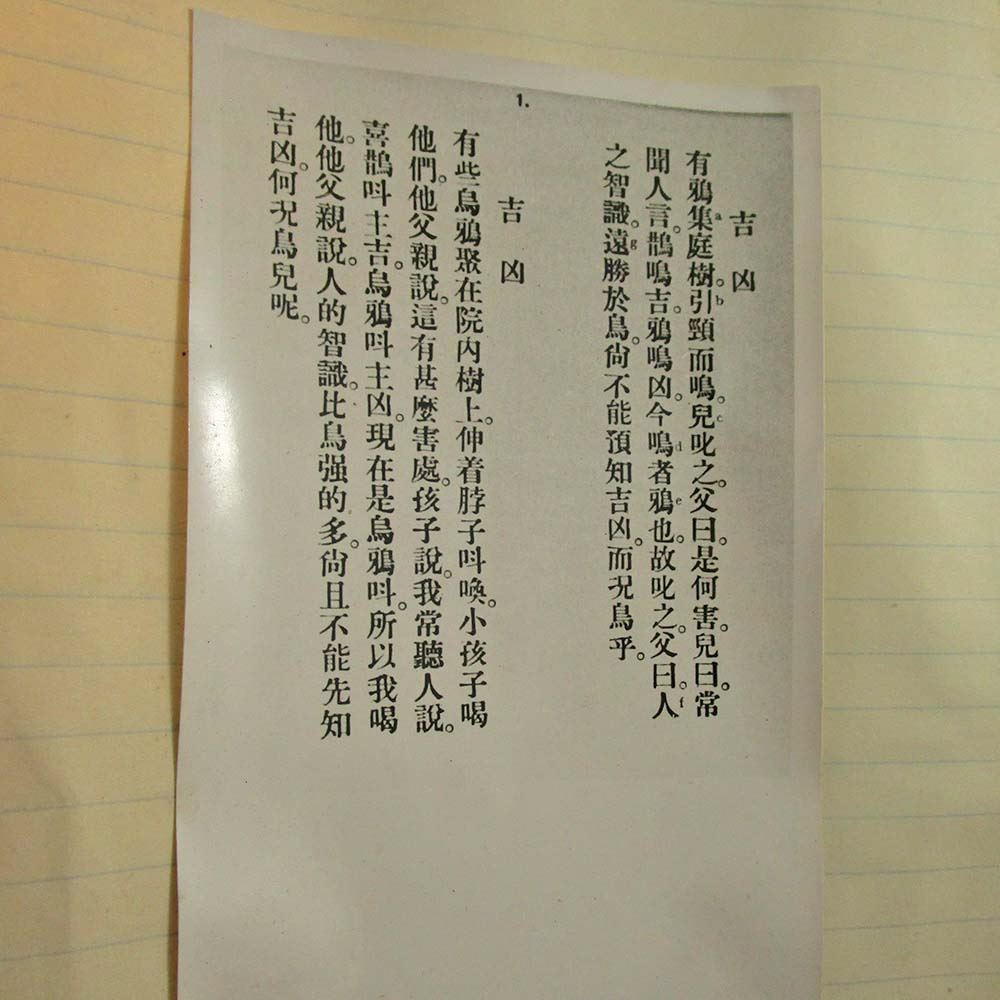 1.
吉凶
有鴉集a庭樹。引b頸而鳴。兒c叱之。父曰。是何害。兒曰。常
聞人言。鵲鳴吉。鴉鳴凶。今d鳴者e鴉也。故叱之。父曰。人f
之智識。g遠勝於鳥。尙不能預知吉凶。而况鳥乎。
吉凶
有些烏鴉聚在院內樹上。伸着脖子呌喚。小孩子喝
他們。他父親說。這有甚麼害處。孩子說。我常聽人說。
喜鵲呌主吉。烏鴉呌主凶。現在是烏鴉呌。所以我喝
他。他父親說。人的智識。比鳥强的多。尙且不能先知
吉凶。何况鳥兒呢。